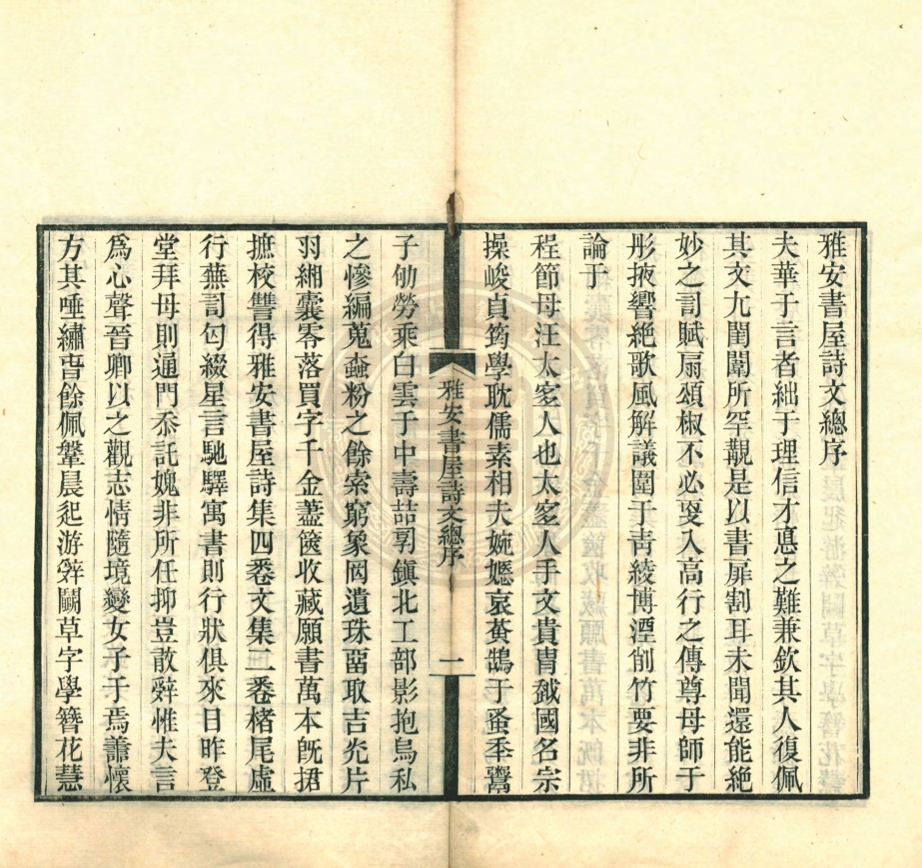 雅安書屋詩文總序
夫華于言者絀于理信才悳之難兼欽其人復佩
其文九閨闈所罕覯是以書扉割耳未聞還能絶
妙之䛐賦扇頌椒不必㪅入高行之傳尊母師于
彤掖響絶歌風解議圍于靑綾博湮削竹要非所
論于
程節母汪太宐人也太宐人手文貴胄鉞國名宗
操峻貞筠學耽儒素相夫婉嫕哀黃鵠于蚤秊鬻
子劬勞乘白雲于中壽喆𠃔鎭北工部影抱烏私
之慘編蒐蠧粉之餘索窮象罔遺珠㽞取吉光片
羽緗囊零落買字千金藎篋收藏願書萬本旣捃
摭校讐得雅安書屋詩集四卷文集二卷楮尾虛
行蕪䛐匃綴星言馳驛寓書則行狀俱來日昨登
堂拜母則通門忝託媿非所任抑豈敢辭惟夫言
爲心聲晉卿以之觀志情隨境變女子于焉譣懷
方其唾繡𠷎餘佩鞶晨起游辭鬭草字學簪花慧
雅安書屋詩文總序
一